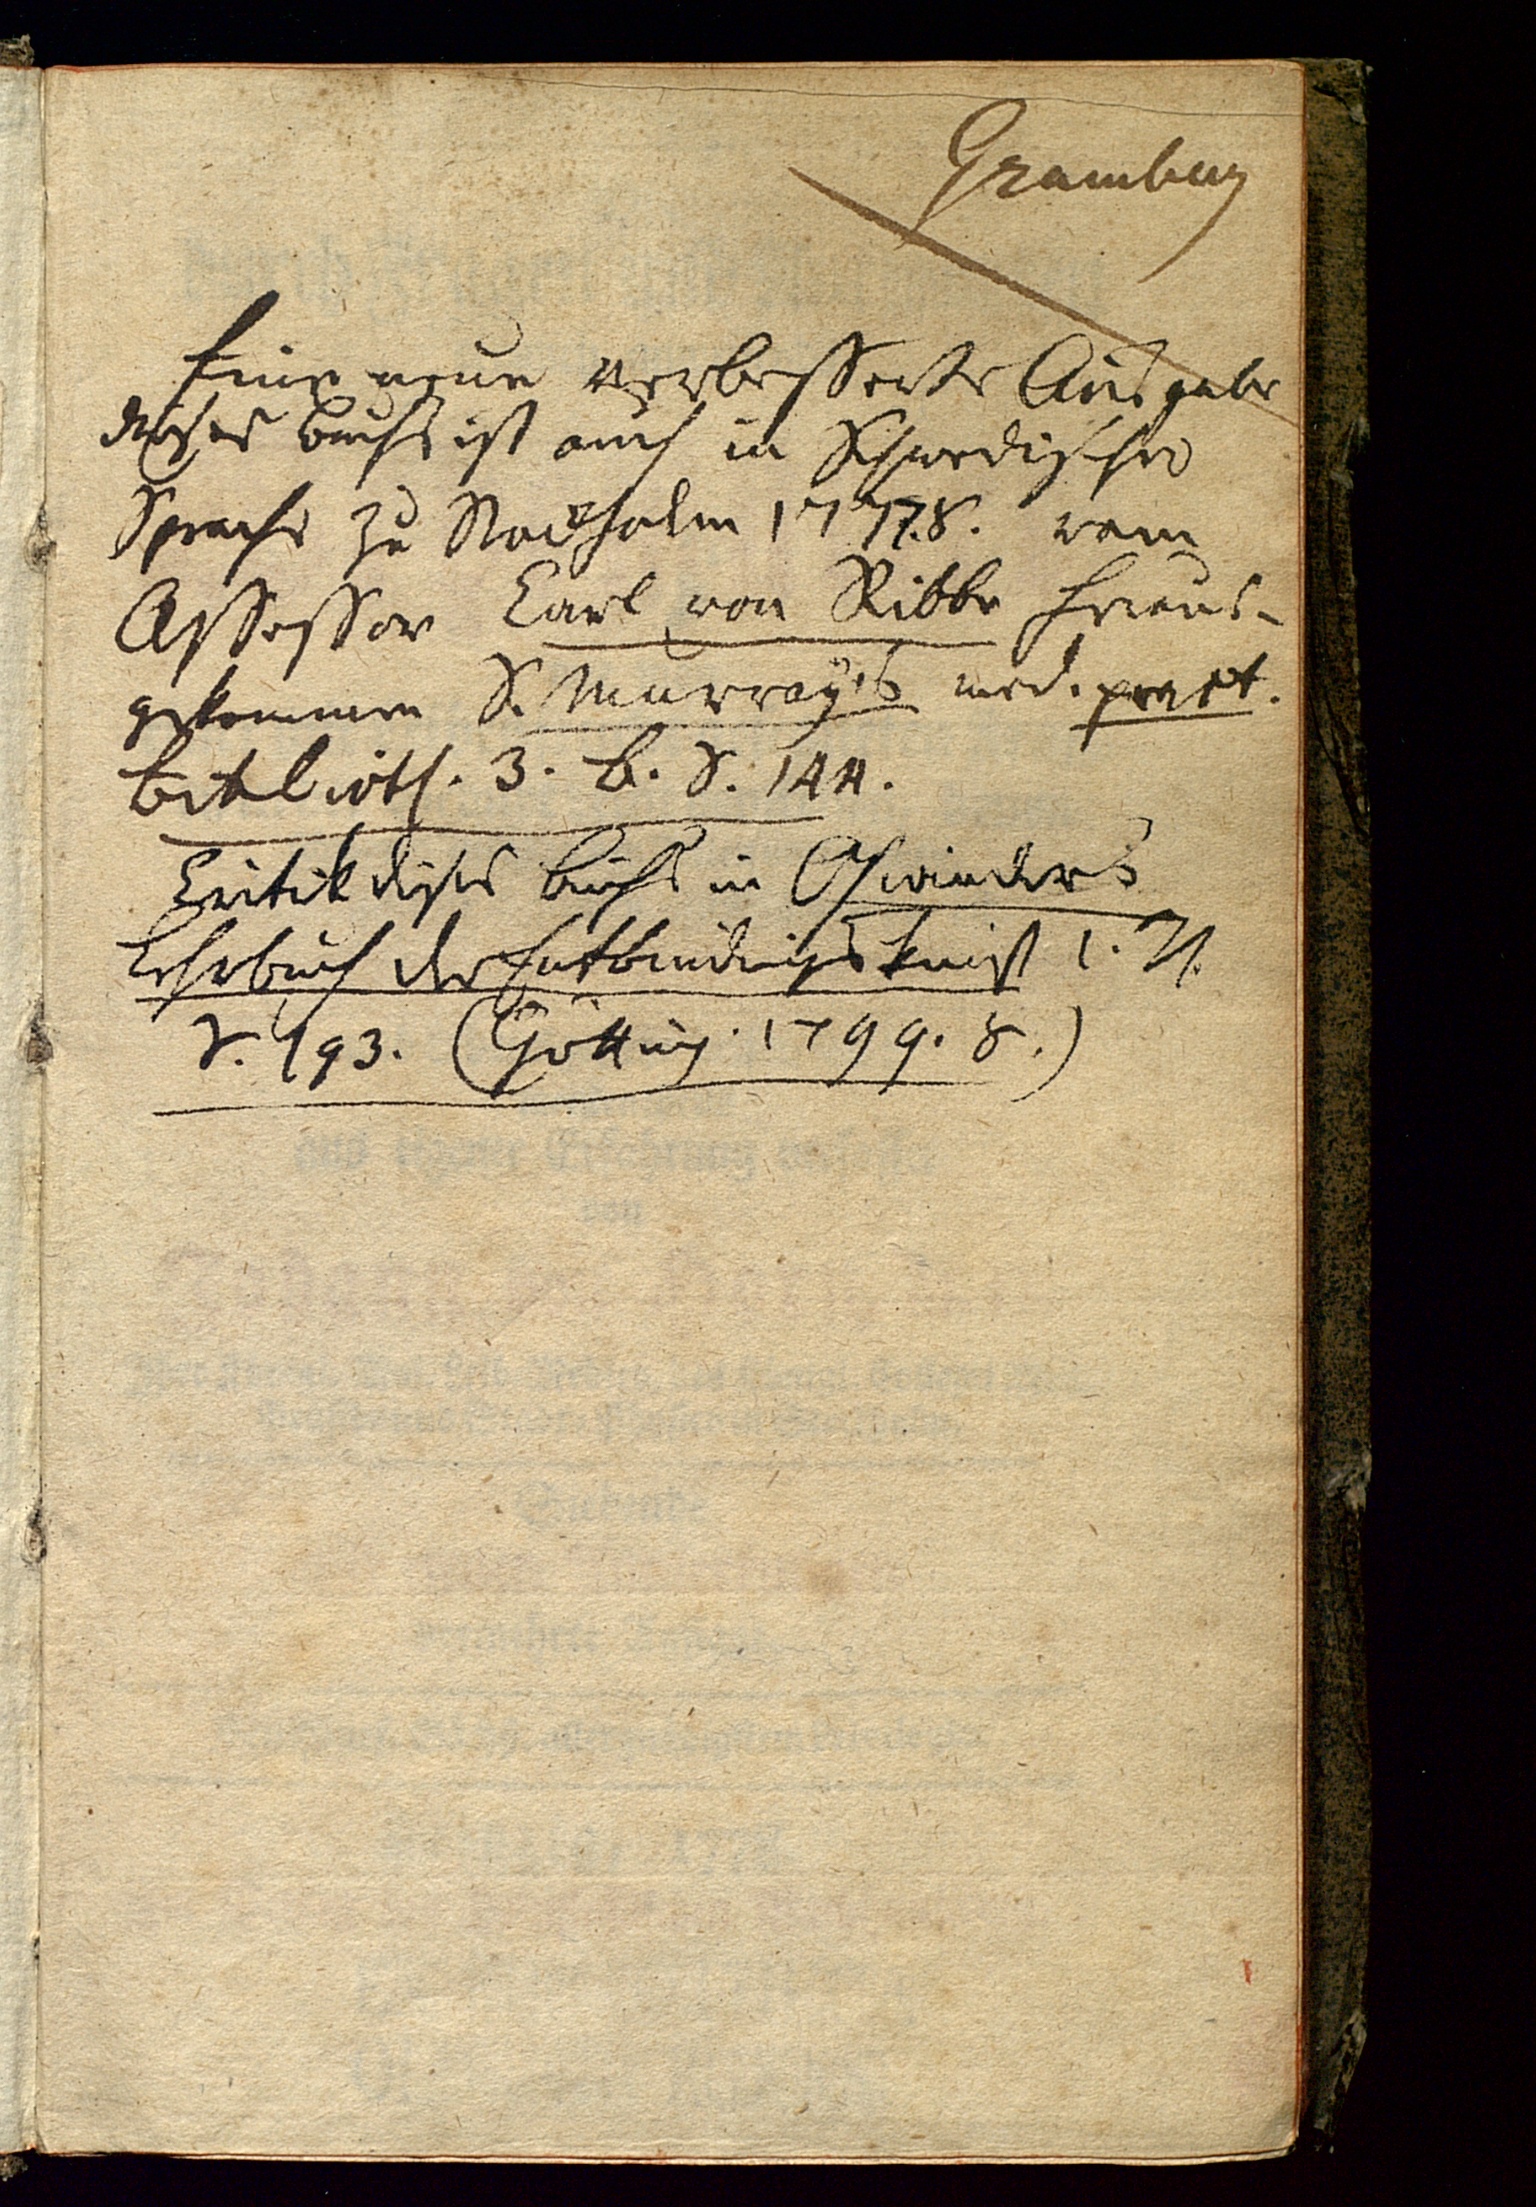 Gramberg
Eine neue verbesserte Ausgabe
dieses Buchs ist auch in Schwedischer
Sprache zu Stockholm 1777.8. vom
Assessor Carl von Ribbe heraus-
gekommen S. Murray's med. pract.
Biblioth. 3. B. S. 144.
Critik dieses Buchs in Osianders
Lehrbuch der Entbindungskunst 1. Th.
S. 193. (Götting. 1799. 8.)